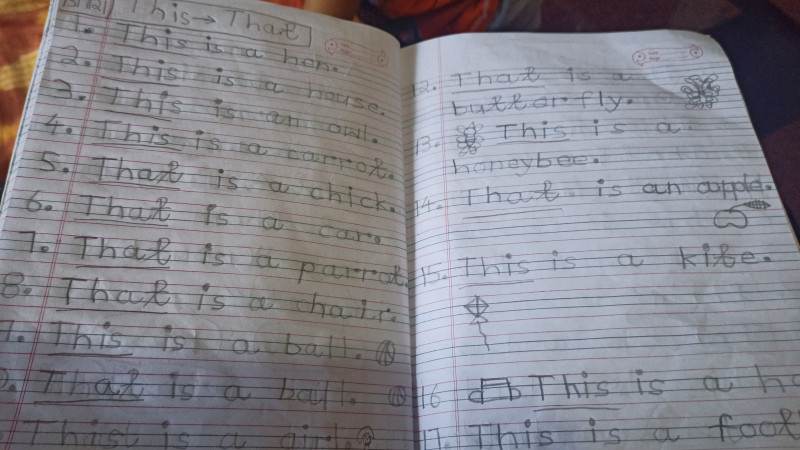 This → That
1. This is a hen.
2. This is a house.
3. This is an owl.
4. This is a carrot.
5. That is a chick.
6. That is a car.
7. That is a parrot.
8. That is a chair.
9. This is a ball.
10. That is a ball.
is a girl.
12. That is a
butterfly.
13. This is a
honeybee.
14. That is an apple.
15. This is a kite.
16 This is a
17. This is a foot